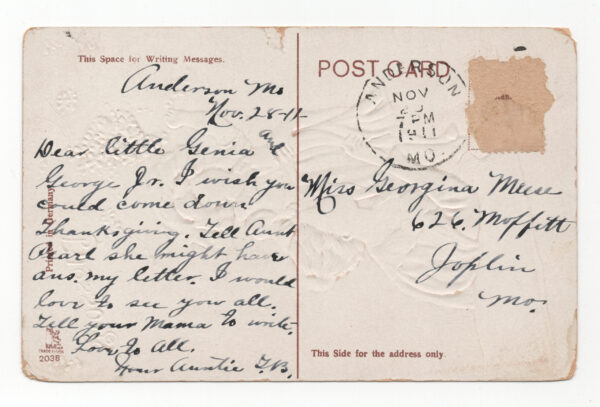 This Space for Writing Messages.
Anderson Mo
Nov. 28-11
Dear Little Genia and
George Jr. I wish you
could come down
Thanksgiving. Tell Aunt
Pearl she might have
ans. my letter. I would
love to see you all.
Tell your Mama to write.
Love to All.
Your Auntie T.B.
Printed in Germany
2038
POST CARD
ANDERSON
NOV
M
1911
MO.
Miss Georgina Meese
626. Moffitt
Joplin
Mo.
This Side for the address only.